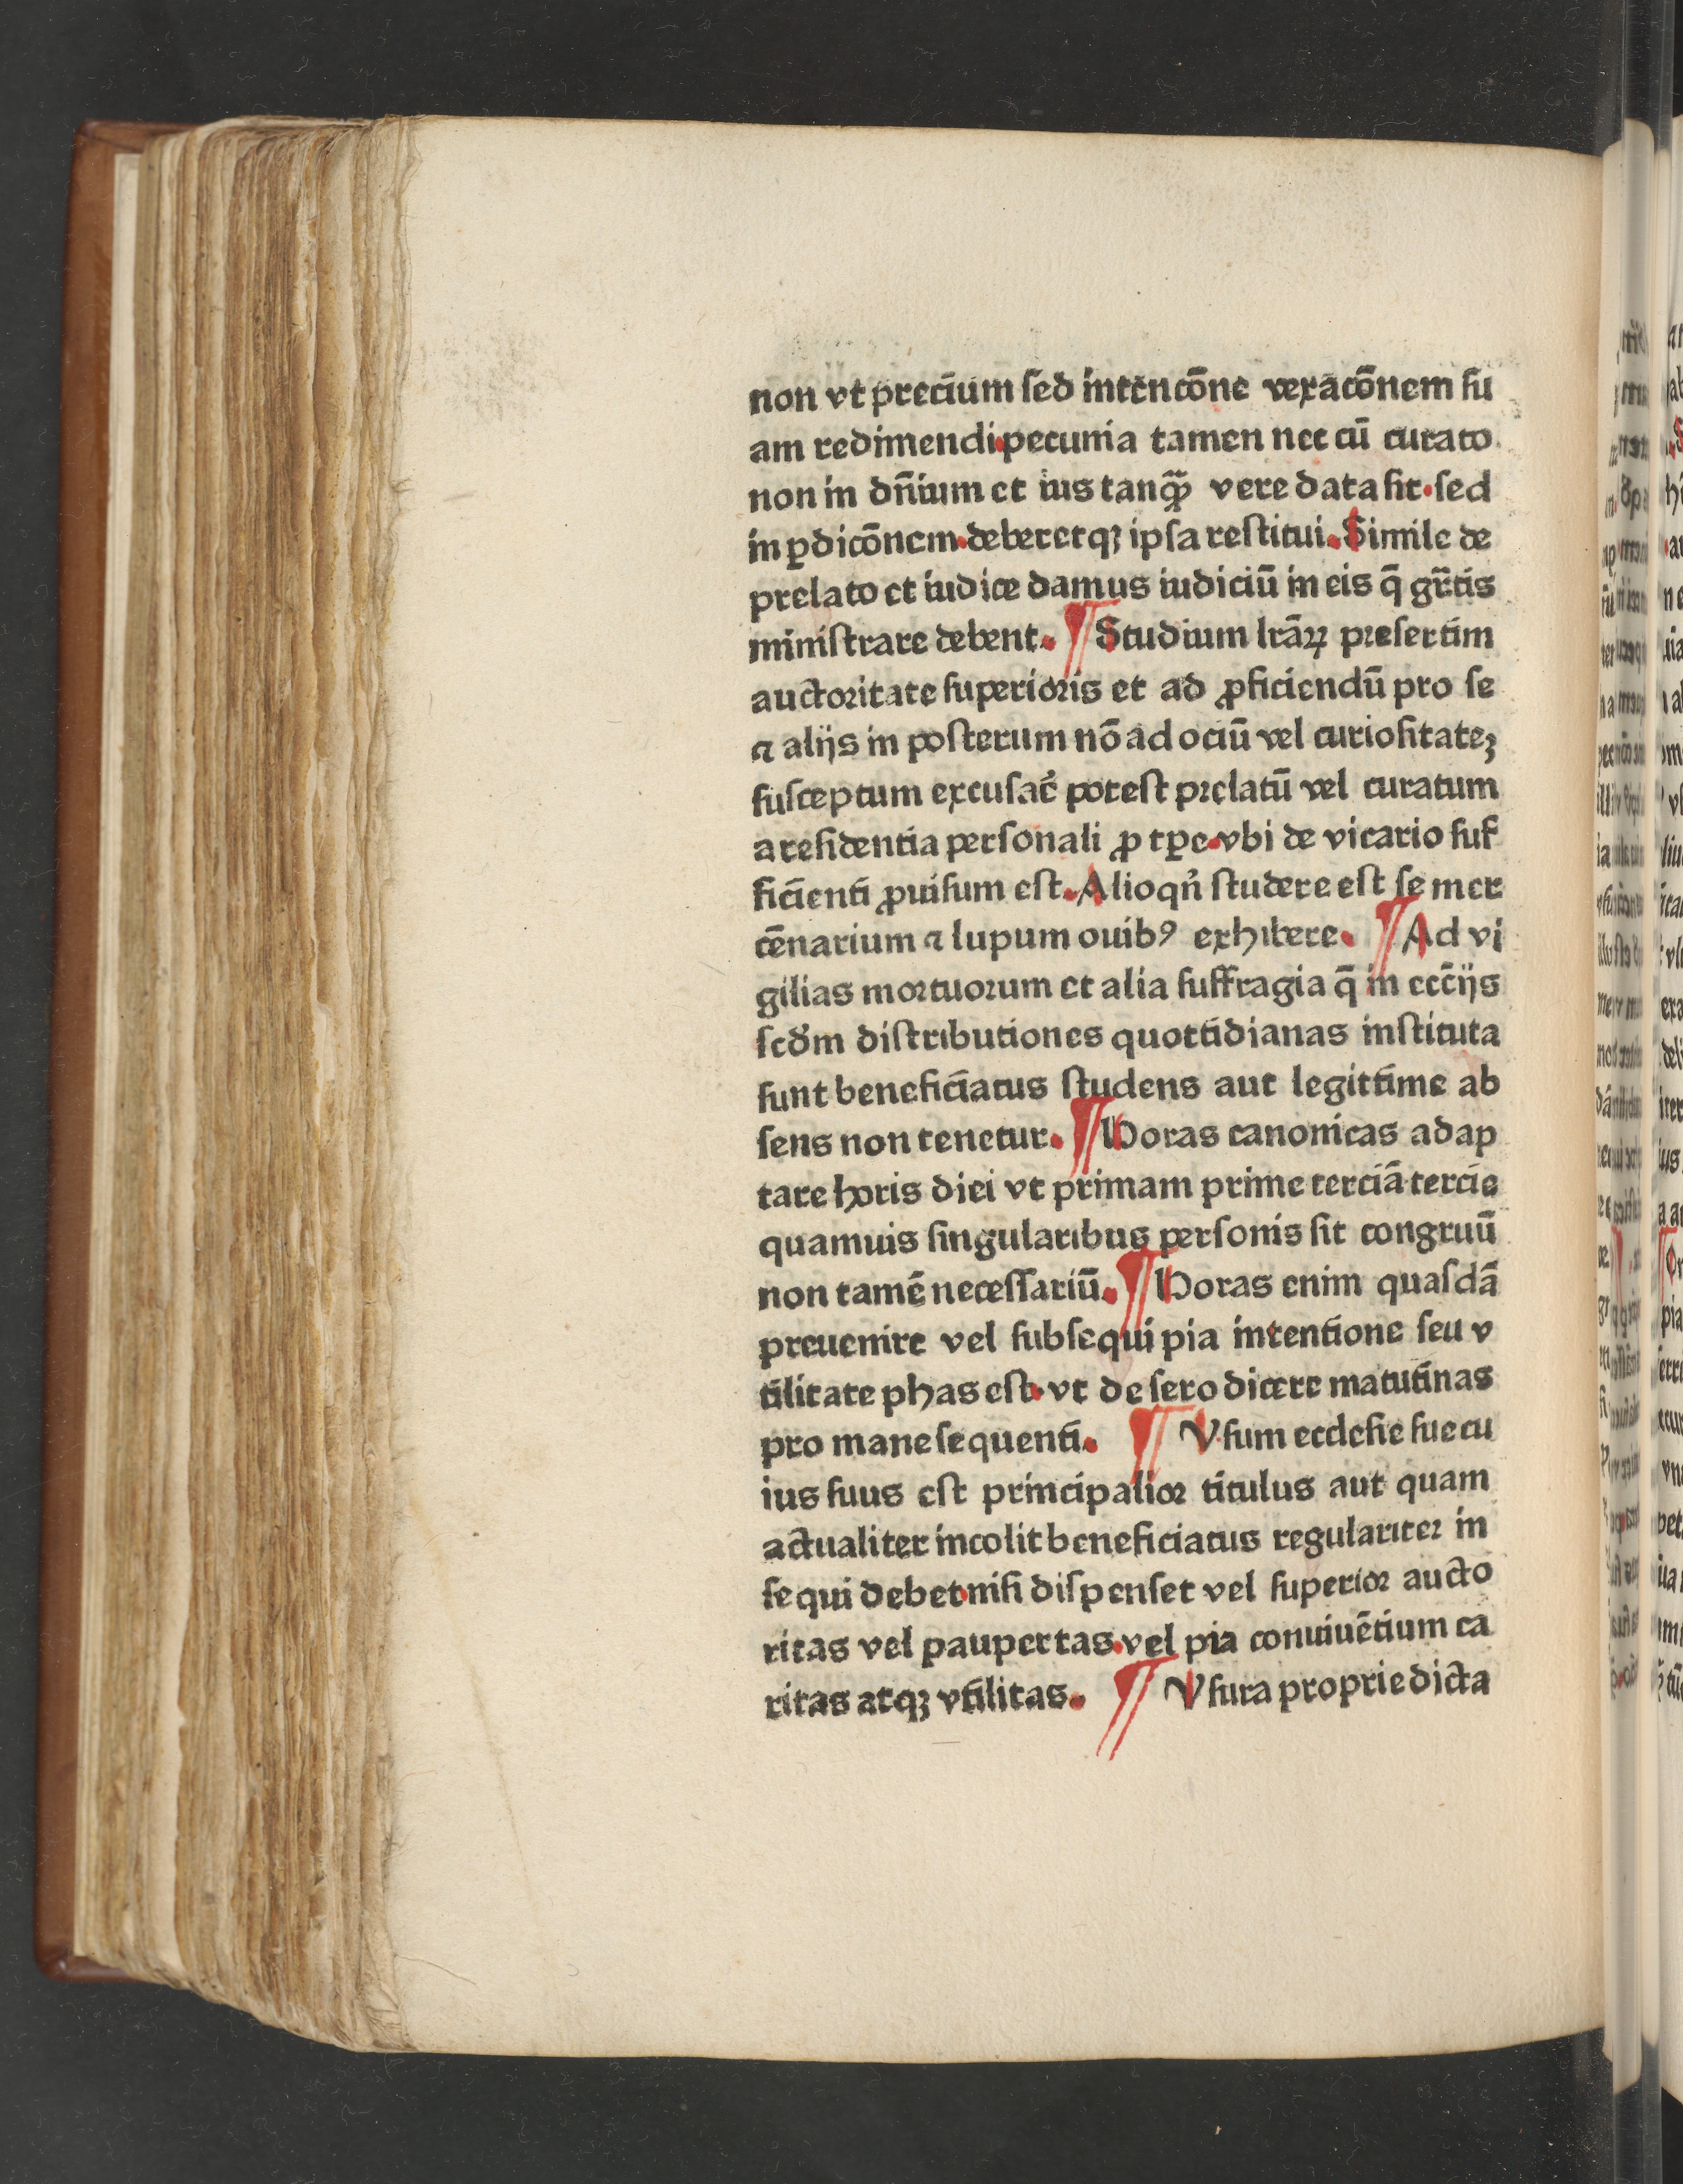 non vt precium ſed intencōne vexacōnem ſu
am redimendi.pecunia tamen nec cū curato
non in dn̄ium et ius tanqꝫ̄ vere data ſit.ſed
in ꝑdicōnem.deberetqꝫ ipſa reſtitui. Simile de
prelato et iudice damus iudiciū in eis q̄ gr̄tis
miniſtrare debent. ¶ Studium lr̄aꝝ preſertim
auctoritate ſuperioris et ad ꝓficiendū pro ſe
⁊ alijs in poſterum nō ad ociū vel curioſitateꝫ
ſuſceptum excuſar̄ poteſt prelatū vel curatum
a reſidentia perſonali ꝓ tꝑe.vbi de vicario ſuf
ficienti ꝓuiſum eſt. Alioqn̄ ſtudere eſt ſe mer
cēnarium ⁊ lupum ouibꝰ exhibere. ¶ Ad vi
gilias mortuorum et alia ſuffragia q̄ in ecc̄ijs
ſcd̄m diſtributiones quottidianas inſtituta
ſunt beneficiatus ſtudens aut legittime ab
ſens non tenetur. ¶ Horas canonicas adap
tare horis diei vt primam prime terciā tercie
quamuis ſingularibus perſonis ſit congruū
non tamē neceſſariū. ¶ Horas enim quaſdā
preuenire vel ſubſequi pia intentione ſeu v
tilitate phas eſt.vt de ſero dicere matutinas
pro mane ſequenti. ¶ Vſum eccleſie ſue cu
ius ſuus eſt principalior titulus aut quam
actualiter incolit beneficiatus regulariter in
ſequi debet.niſi diſpenſet vel ſuperior aucto
ritas vel paupertas.vel pia conuiuētium ca
ritas atqꝫ vtilitas. ¶ Vſura proprie dicta